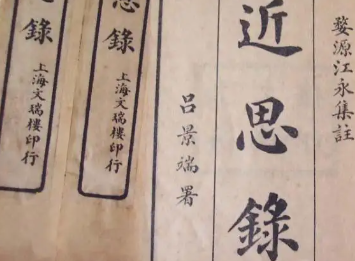 婺源江永集註
近思錄
呂景端署
思錄
上海文瑞樓印行
錄
上海文瑞樓印行